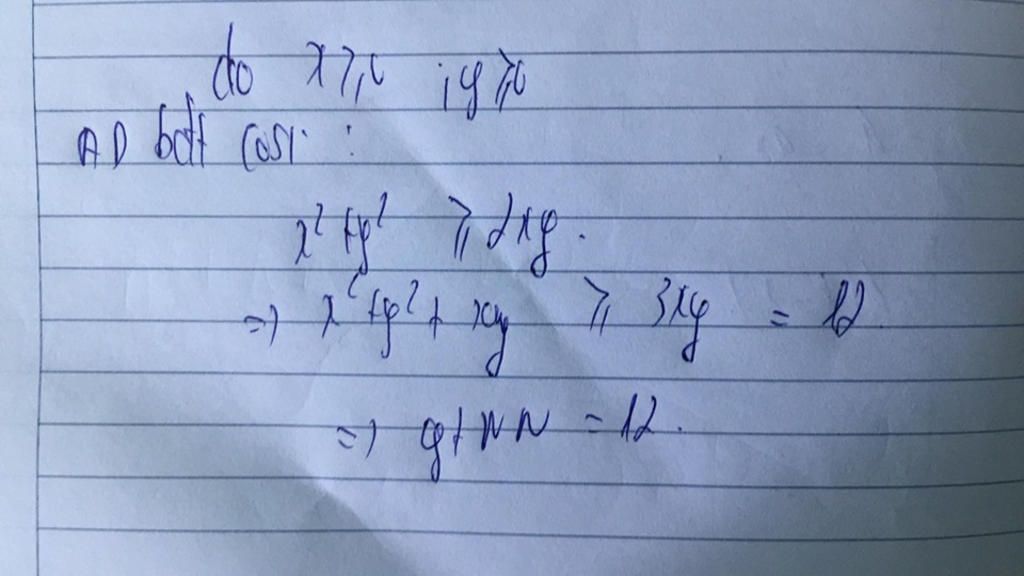 do x ⩾ 0 ; y ⩾ 0
AD bđt cosi :
x² + y² ⩾ 2xy .
=> x² + y² + xy ⩾ 3xy = 12
=> gtNN = 12 .